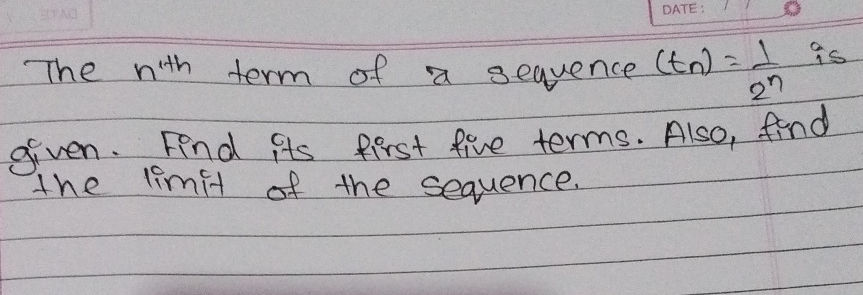 DATE: / /
The n'th term of a sequence (tn) = 1/2^n is
given. Find its first five terms. Also, find
the limit of the sequence.